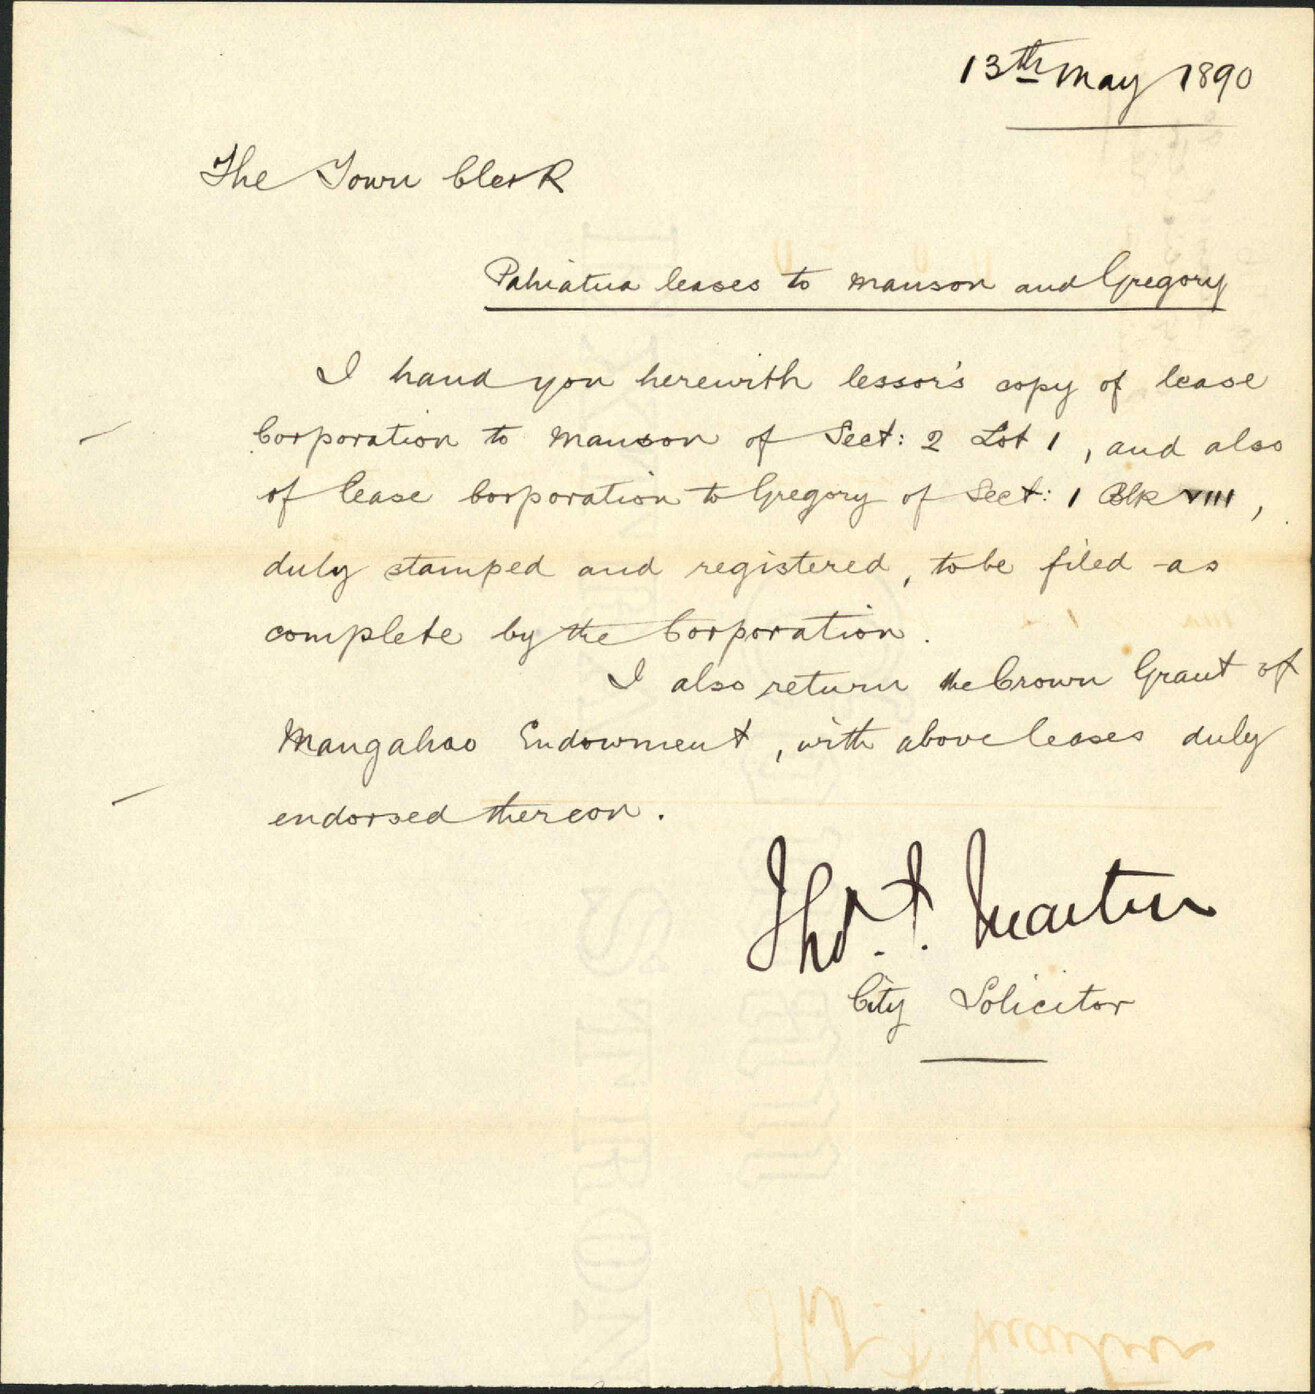 13th May 1890
The Town Clerk
Pahiatua leases to Manson and Gregory
I hand you herewith lessor's copy of lease
Corporation to Manson of Sect: 2 Lot 1, and also
of lease Corporation to Gregory of Sect: 1 Blk VIII,
duly stamped and registered, to be filed as
complete by the Corporation.
I also return the Crown Grant of
Mangahao Endowment, with above leases duly
endorsed thereon.
Thos. F. Martin
City Solicitor